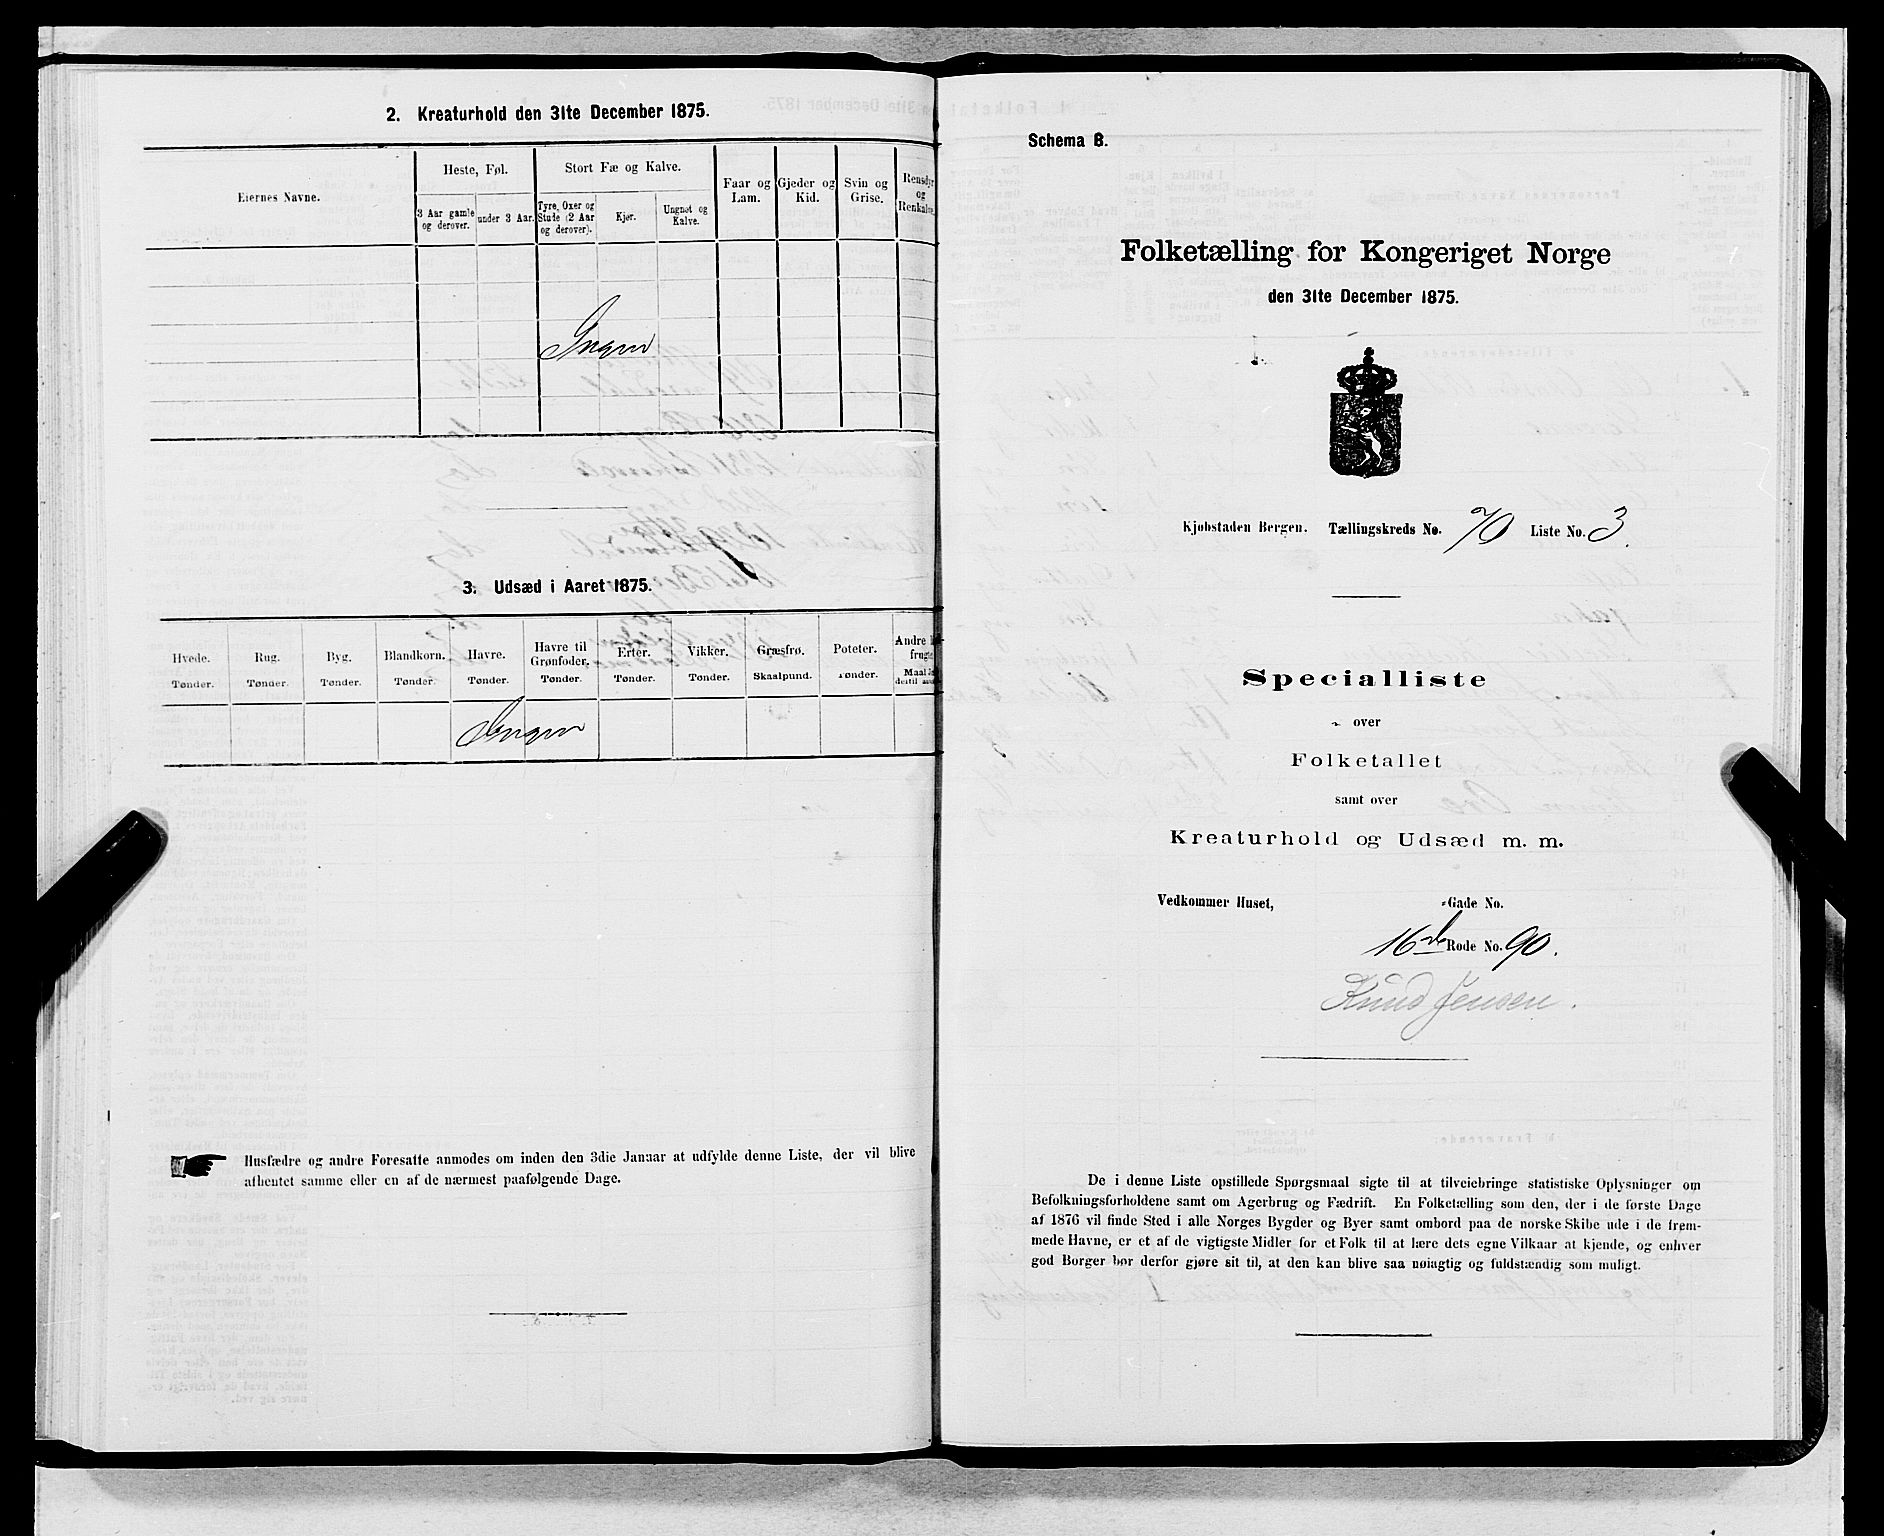 2. Kreaturhold den 31te December 1875.
Eiernes Navne.
Heste, Føl.
Stort Fæ og Kalve.
3 Aar gamle og derover.
under 3 Aar.
Tyre, Oxer og Stude (2 Aar og derover).
Kjør.
Ungnøt og Kalve.
Faar og Lam.
Gjeder og Kid.
Svin og Grise.
Rensdyr og Renkalve.
Ingen
3. Udsæd i Aaret 1875.
Hvede. Rug. Byg. Blandkorn. Havre. Havre til Grønfoder. Erter. Vikker. Græsfrø. Poteter. Andre
Tønder. Tønder. Tønder. Tønder. Tønder. Tønder. Tønder. Tønder. Skaalpund. Tønder. Maal
Ingen
Husfædre og andre Foresatte anmodes om inden den 3die Januar at udfylde denne Liste, der vil blive
afhentet samme eller en af de nærmest paafølgende Dage.
Schema B.
Folketælling for Kongeriget Norge
den 31te December 1875.
Kjøbstaden Bergen. Tællingskreds No. 70 Liste No. 3.
Specialliste
over
Folketallet
samt over
Kreaturhold og Udsæd m. m.
Vedkommer Huset, Gade No.
16de Rode No. 90.
Knud Jensen.
De i denne Liste opstillede Spørgsmaal sigte til at tilveiebringe statistiske Oplysninger om
Befolkningsforholdene samt om Agerbrug og Fædrift. En Folketælling som den, der i de første Dage
af 1876 vil finde Sted i alle Norges Bygder og Byer samt ombord paa de norske Skibe ude i de frem-
mede Havne, er et af de vigtigste Midler for et Folk til at lære dets egne Vilkaar at kjende, og enhver
god Borger bør derfor gjøre sit til, at den kan blive saa nøiagtig og fuldstændig som muligt.